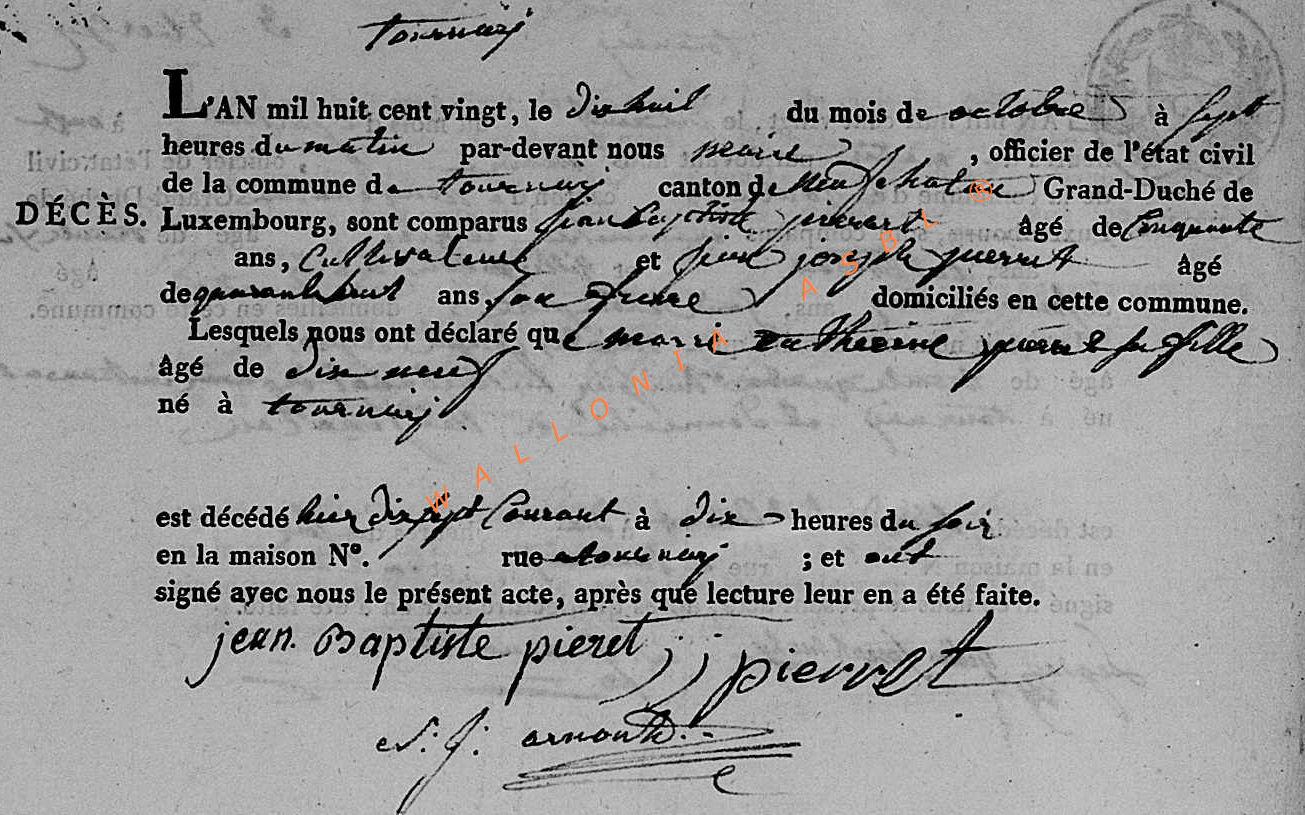 tournay
L'AN mil huit cent vingt, le dix huit du mois de octobre à sept
heures du matin par-devant nous maire, officier de l'état civil
de la commune de tournay canton de Neufchateau Grand-Duché de
DÉCÈS. Luxembourg, sont comparus jean baptiste pierret âgé de Cinquante
ans, Cultivateur et pierre joseph pierret âgé
de quarante huit ans, son frere domiciliés en cette commune.
Lesquels nous ont déclaré que marie catherine pierret sa fille
âgé de dix neuf
né à tournay
est décédé hier dix sept Courant à dix heures du soir
en la maison N°. rue a tournay ; et ont
signé avec nous le présent acte, après que lecture leur en a été faite.
jean. Baptiste pieret j j pierret
J: arnould
WALLONIA ASBL ®